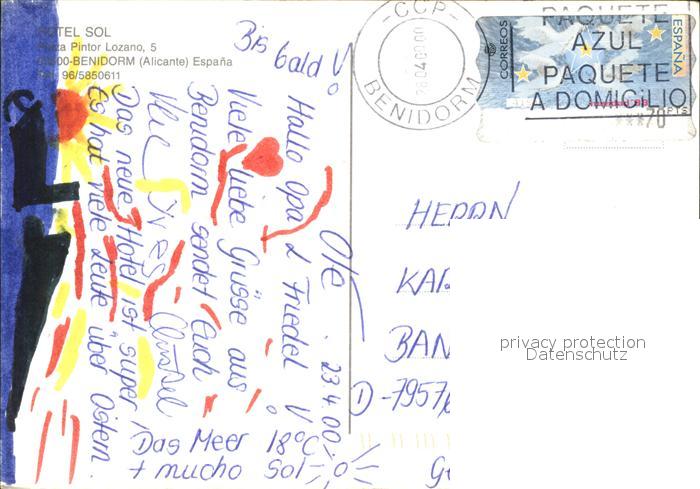 HOTEL SOL
Plaza Pintor Lozano, 5
03500-BENIDORM (Alicante) España
Tel. 96/5850611
Olé
23.4.00
Hallo Opa & Friedel
Viele liebe Grüsse aus
Bendorm sendet Euch
Yves
Das neue Hotel ist super!
Es hat viele Leute über Ostern.
Das Meer 18°C
+ mucho Sol
Bis bald
CCP
BENIDORM
CORREOS
ESPAÑA
PAQUETE
AZUL
PAQUETE
A DOMICILIO
***70 PTS
HERRN
KAR
BAN
D-7957
privacy protection
Datenschutz